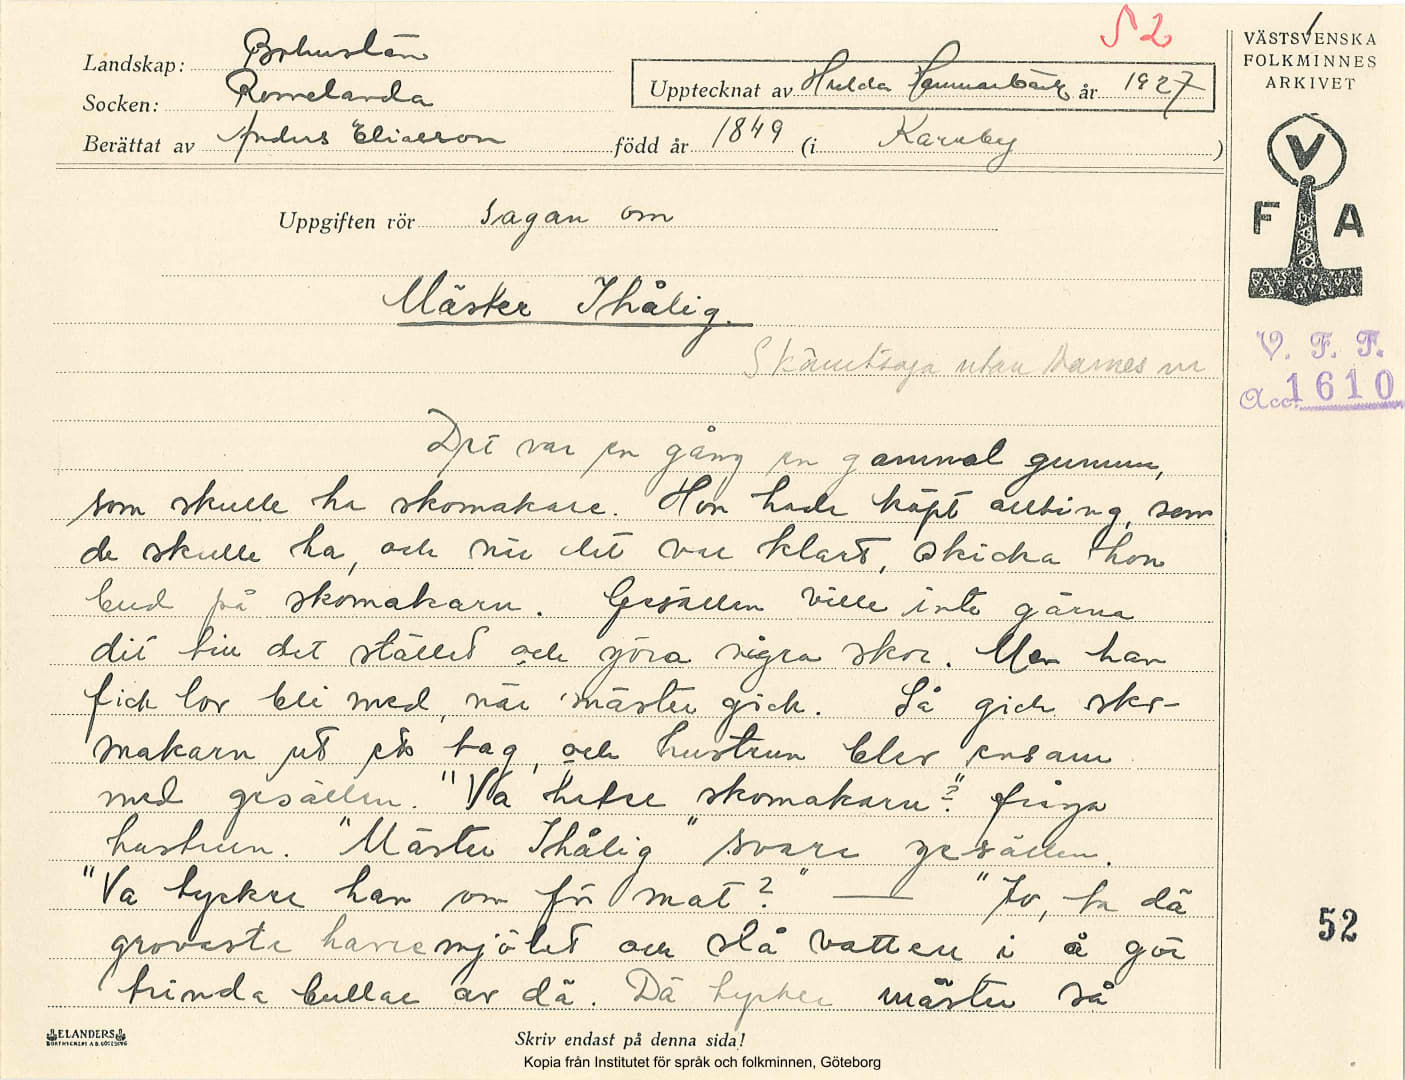 52
Landskap: Bohuslän
Socken: Romelanda
Upptecknat av Hulda Hammarbäck år 1927
Berättat av Anders Eliasson född år 1849 (i Kareby)
VÄSTSVENSKA
FOLKMINNES
ARKIVET
V
F A
V. F. F.
Acc. 1610
Uppgiften rör Sagan om
Mäster Ihålig.
Skämtsaga utan
Det var en gång en gammal gumma,
som skulle ha skomakare. Hon hade köpt allting, som
de skulle ha, och när det var klart, skicka hon
bud på skomakarn. Gesällen ville inte gärna
dit till det stället och göra några skor. Men han
fick lov bli med, när mäster gick. Så gick sko-
makarn ut ett tag, och hustrun blev ensam
med gesällen. "Va heter skomakarn?" fråga
hustrun. "Mäster Ihålig" svara gesällen.
"Va tycker han om för mat?" — "Jo, ta dä
groveste havremjölet och slå vatten i å gör
trinda bullar av dä. Dä tycker mäster så
52
ELANDERS
BOKTRYCKERI A.B. GÖTEBORG
Skriv endast på denna sida!
Kopia från Institutet för språk och folkminnen, Göteborg